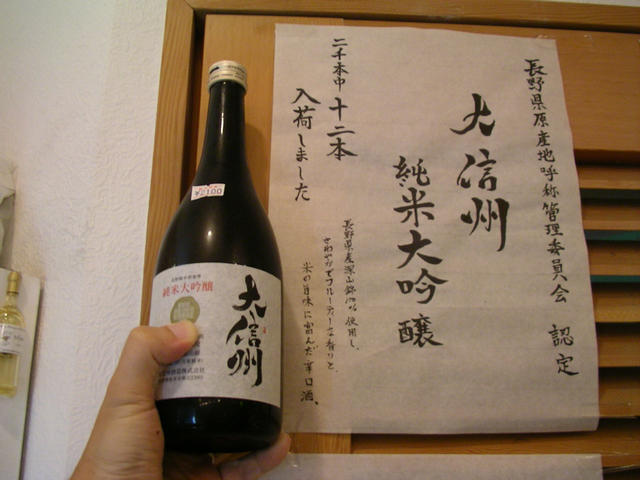 長野県原産地呼称管理委員会 認定
大信州
純米大吟醸
長野県産深山錦100%使用し、
さわやかでフルーティーな香りと、
米の旨味に富んだ辛口酒。
二千本中 十二本
入荷しました
2100
純米大吟醸
大信州